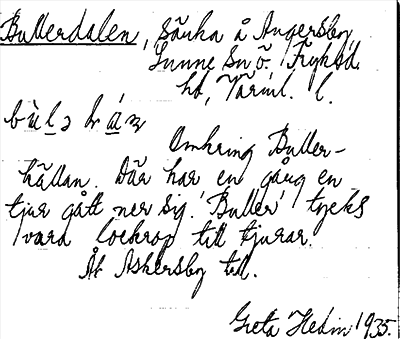 Bullerdalen, Sänka å Angersby
Sunne Sn ö. Fryksd.
hd, Värml. l.
Omkring Buller-
källan. Där har en gång en
tjur gått ner sig. 'Buller' tycks
vara lockrop till tjurar.
Åt Askersby till.
Greta Hedin 1935.